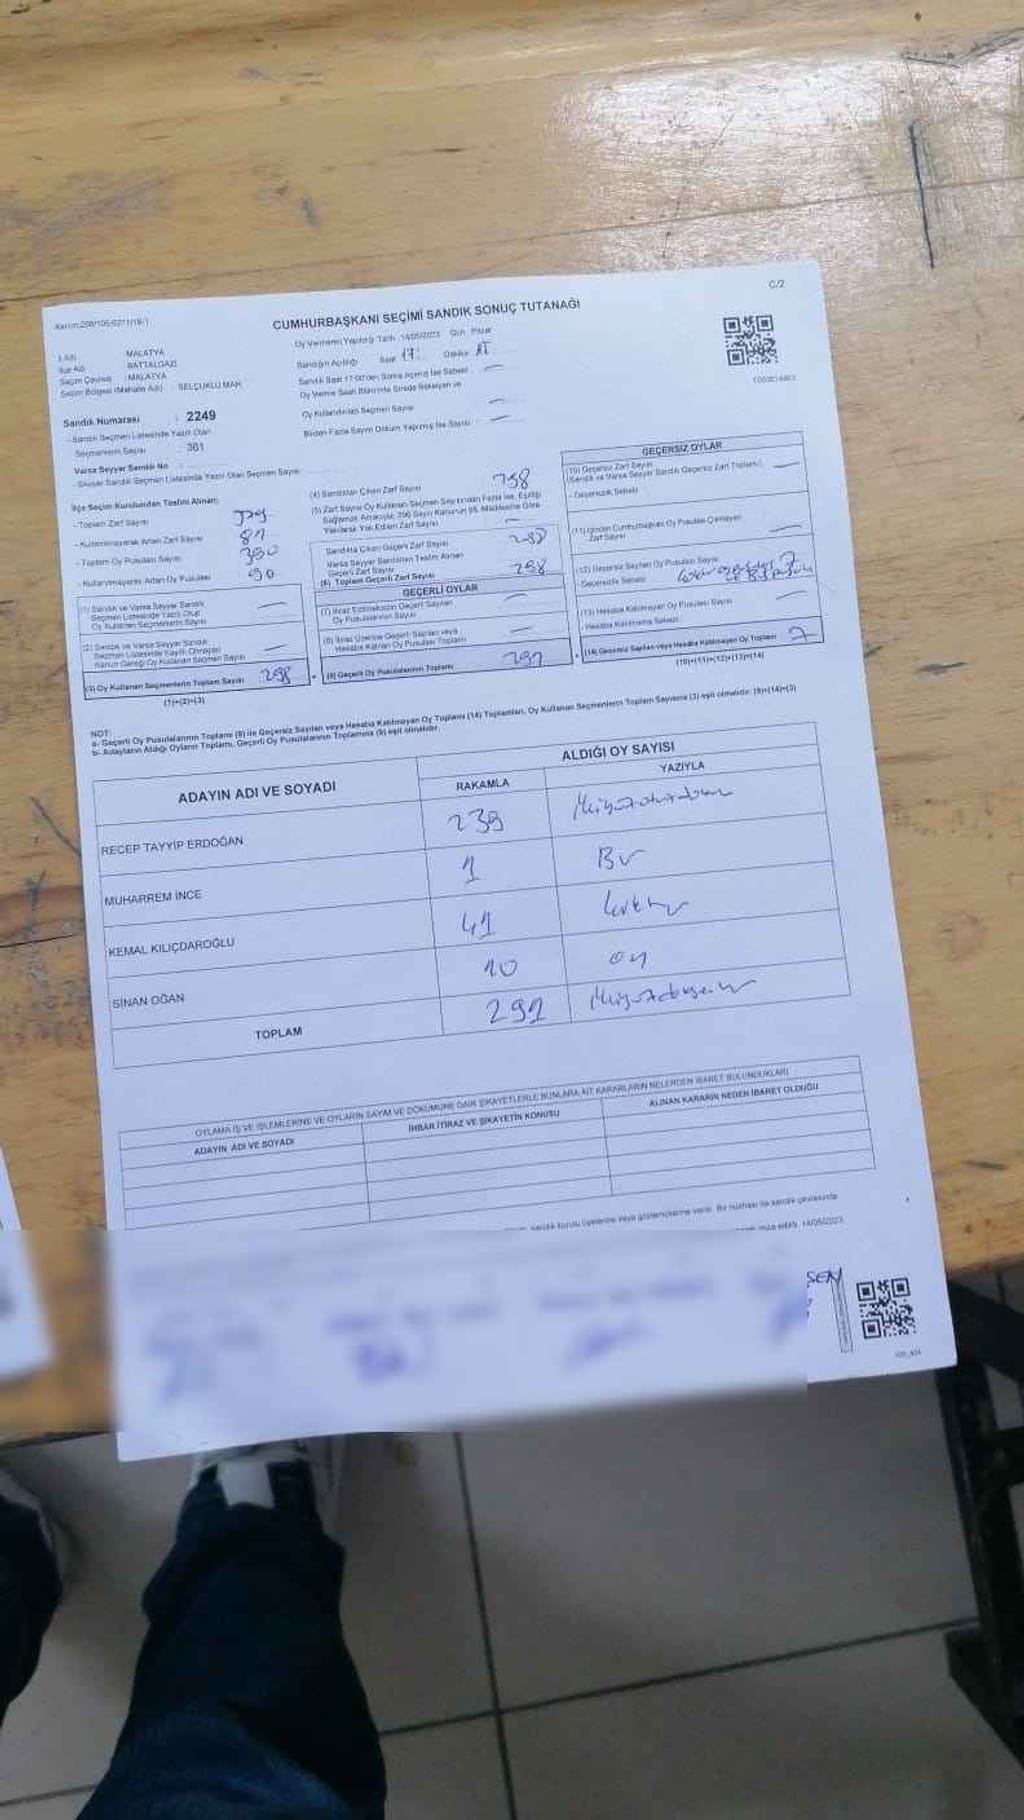 C/2
CUMHURBAŞKANI SEÇİMİ SANDIK SONUÇ TUTANAĞI
Oy Vermenin Yapıldığı Tarih: 14/05/2023 Gün: Pazar
İl Adı MALATYA
İlçe Adı BATTALGAZİ
Seçim Çevresi : MALATYA
Seçim Bölgesi (Mahalle Adı) : SELÇUKLU MAH.
Sandığın Açıldığı Saat 17:
Sandık Numarası : 2249
- Sandık Seçmen Listesinde Yazılı Olan
Seçmenlerin Sayısı : 361
Oy Kullandırılan Seçmen Sayısı
Birden Fazla Sayım Döküm Yapılmış İse Sayısı :
Varsa Seyyar Sandık No :
- Seyyar Sandık Seçmen Listesinde Yazılı Olan Seçmen Sayısı
İlçe Seçim Kurulundan Teslim Alınan;
- Toplam Zarf Sayısı
- Kullanılmayarak Artan Zarf Sayısı 81
- Toplam Oy Pusulası Sayısı 380
- Kullanılmayarak Artan Oy Pusulası 90
(1) Sandık ve Varsa Seyyar Sandık
Seçmen Listesinde Yazılı Olup
Oy Kullanan Seçmenlerin Sayısı
(2) Sandık ve Varsa Seyyar Sandık
Seçmen Listesinde Kayıtlı Olmayan
Kanun Gereği Oy Kullanan Seçmen Sayısı
(3) Oy Kullanan Seçmenlerin Toplam Sayısı 298
(1)+(2)=(3)
(4) Sandıktan Çıkan Zarf Sayısı 298
(5) Zarf Sayısı Oy Kullanan Seçmen Sayısından Fazla ise, Eşitliği
Sağlamak Amacıyla, 298 Sayılı Kanunun 98. Maddesine Göre
Yakılarak Yok Edilen Zarf Sayısı
Sandıkta Çıkan Geçerli Zarf Sayısı 298
Varsa Seyyar Sandıktan Teslim Alınan
Geçerli Zarf Sayısı
(6) Toplam Geçerli Zarf Sayısı 298
GEÇERLİ OYLAR
(7) İtiraz Edilmeksizin Geçerli Sayılan
Oy Pusulalarının Sayısı
(8) İtiraz Üzerine Geçerli Sayılan veya
Hesaba Katılan Oy Pusulası Toplamı
(9) Geçerli Oy Pusulalarının Toplamı 291
GEÇERSİZ OYLAR
(10) Geçersiz Zarf Sayısı
(Sandık ve Varsa Seyyar Sandık Geçersiz Zarf Toplamı)
- Geçersizlik Sebebi
(11) İçinden Cumhurbaşkanı Oy Pusulası Çıkmayan
Zarf Sayısı
(12) Geçersiz Sayılan Oy Pusulası Sayısı 7
- Geçersizlik Sebebi
(13) Hesaba Katılmayan Oy Pusulası Sayısı
- Hesaba Katılmama Sebebi
(14) Geçersiz Sayılan veya Hesaba Katılmayan Oy Toplamı 7
(10)+(11)+(12)+(13)=(14)
NOT:
a- Geçerli Oy Pusulalarının Toplamı (9) ile Geçersiz Sayılan veya Hesaba Katılmayan Oy Toplamı (14) Toplamları, Oy Kullanan Seçmenlerin Toplam Sayısına (3) eşit olmalıdır. (9)+(14)=(3)
b- Adayların Aldığı Oyların Toplamı, Geçerli Oy Pusulalarının Toplamına (9) eşit olmalıdır.
ADAYIN ADI VE SOYADI
ALDIĞI OY SAYISI
RAKAMLA YAZIYLA
RECEP TAYYİP ERDOĞAN 239 ikiyüzotuzdokuz
MUHARREM İNCE 1 Bir
KEMAL KILIÇDAROĞLU 41 kırkbir
SİNAN OĞAN 10 on
TOPLAM 291 ikiyüzdoksanbir
OYLAMA İŞ VE İŞLEMLERİNE VE OYLARIN SAYIM VE DÖKÜMÜNE DAİR ŞİKAYETLERLE BUNLARA AİT KARARLARIN NELERDEN İBARET BULUNDUKLARI
ADAYIN ADI VE SOYADI İHBAR İTİRAZ VE ŞİKAYETİN KONUSU ALINAN KARARIN NEDEN İBARET OLDUĞU
sandık kurulu üyelerine veya gözlemcilerine verilir. Bir nüshası da sandık çevresinde
14/05/2023
ŞEN